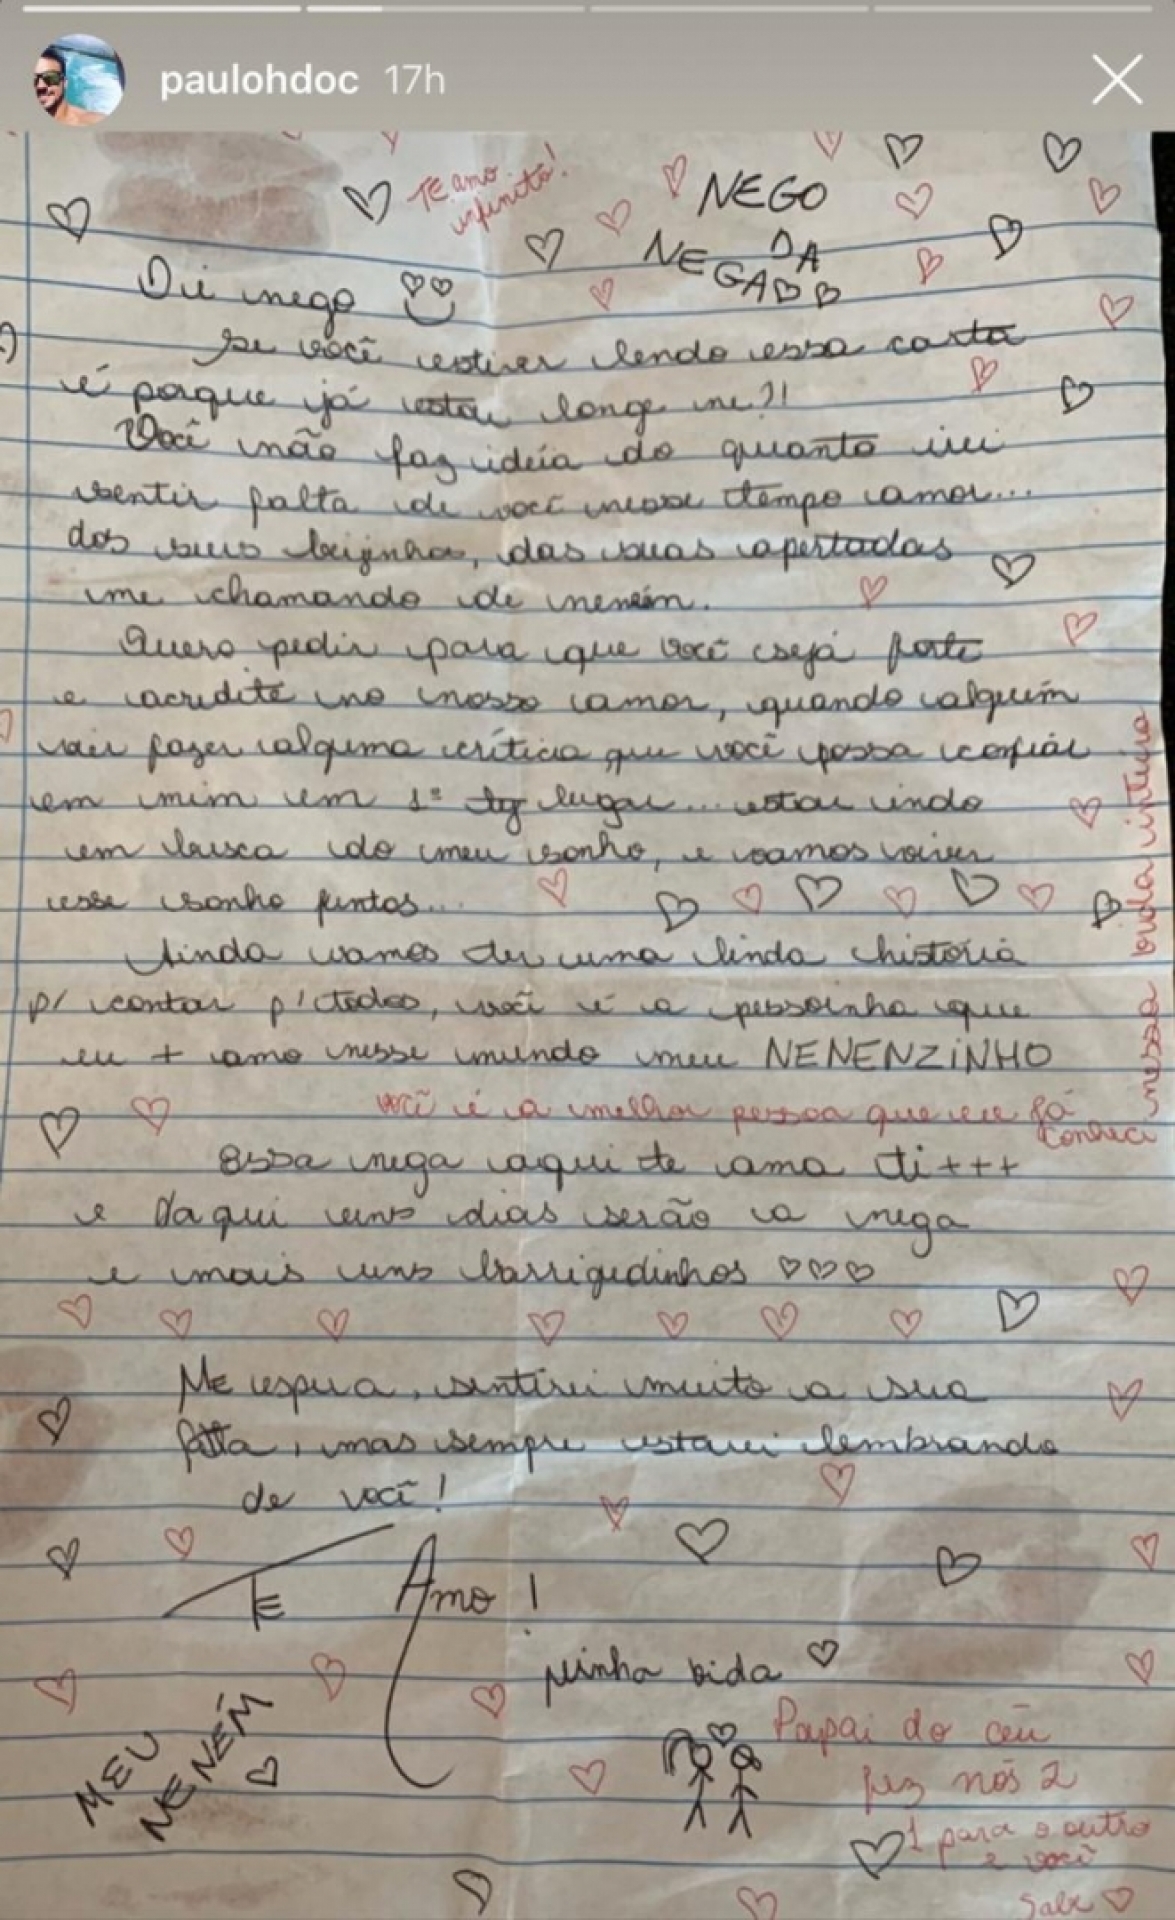 paulohdoc 17h
TE amo
infinito!
NEGO
DA
NEGA
Oi nego
Se você estiver lendo essa carta
é porque já estou longe ne?!
Você não faz idéia do quanto irei
sentir falta de você nesse tempo amor...
dos seus beijinhos, das suas apertadas
me chamando de neném.
Quero pedir para que você seja forte
e acredite no nosso amor, quando alguém
vier fazer alguma crítica que você possa confiar
em mim em 1º lugar... estou indo
em busca do meu sonho, e vamos viver
esse sonho juntos...
Ainda vamos ter uma linda história
p/ contar p/ todos, você é a pessoinha que
eu + amo nesse mundo meu NENENZINHO
você é a melhor pessoa que eu já
conheci
nessa vida inteira
Essa nega aqui te ama di+++
e daqui uns dias serão a nega
e mais uns barrigudinhos
Me espera, sentirei muito a sua
falta, mas sempre estarei lembrando
de você!
TE Amo!
minha vida
MEU
NENÉM
Papai do céu
fez nós 2
1 para o outro
e você
sabe